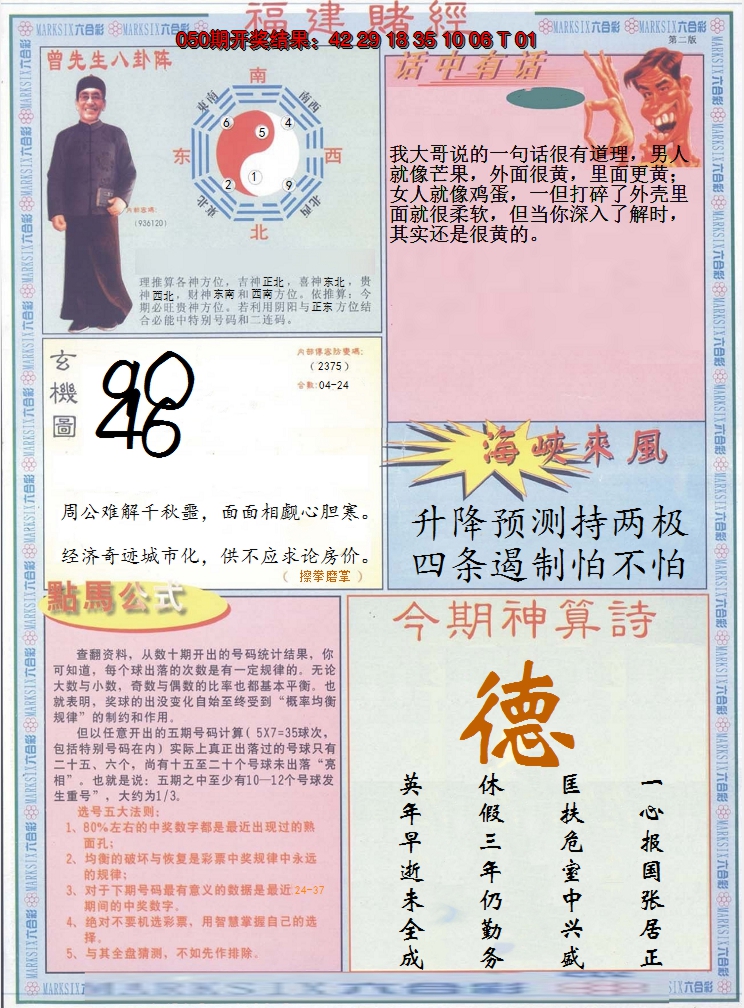 福建賭經
050期开奖结果：42 29 18 35 10 06 T 01
MARKSIX六合彩
第二版
曾先生八卦阵
南
东南
西南
6
5
4
东
西
2
1
9
東北
西北
北
内部密碼:
(936120)
理推算各神方位，吉神正北，喜神东北，贵
神西北，财神东南和西南方位。依推算：今
期必旺贵神方位。若利用阴阳与正东方位结
合必能中特别号码和二连码。
话中有话
我大哥说的一句话很有道理，男人
就像芒果，外面很黄，里面更黄；
女人就像鸡蛋，一但打碎了外壳里
面就很柔软，但当你深入了解时，
其实还是很黄的。
玄機圖
90
46
(2375)
合数:04-24
周公难解千秋噩，面面相觑心胆寒。
经济奇迹城市化，供不应求论房价。
（ 擦拳磨掌 ）
海峽來風
升降预测持两极
四条遏制怕不怕
點馬公式
查翻资料，从数十期开出的号码统计结果，你
可知道，每个球出落的次数是有一定规律的。无论
大数与小数，奇数与偶数的比率也都基本平衡。也
就表明，奖球的出没变化自始至终受到“概率均衡
规律”的制约和作用。
但以任意开出的五期号码计算( 5X7=35球次，
包括特别号码在内) 实际上真正出落过的号球只有
二十五、六个，尚有十五至二十个号球未出落“亮
相”。也就是说：五期之中至少有10—12个号球发
生重号”，大约为1/3。
选号五大法则：
1、80%左右的中奖数字都是最近出现过的熟
面孔；
2、均衡的破坏与恢复是彩票中奖规律中永远
的规律；
3、对于下期号码最有意义的数据是最近24-37
期间的中奖数字。
4、绝对不要机选彩票，用智慧掌握自己的选
择。
5、与其全盘猜测，不如先作排除。
今期神算詩
德
一心报国张居正
匡扶危室中兴盛
休假三年仍勤务
英年早逝未全成